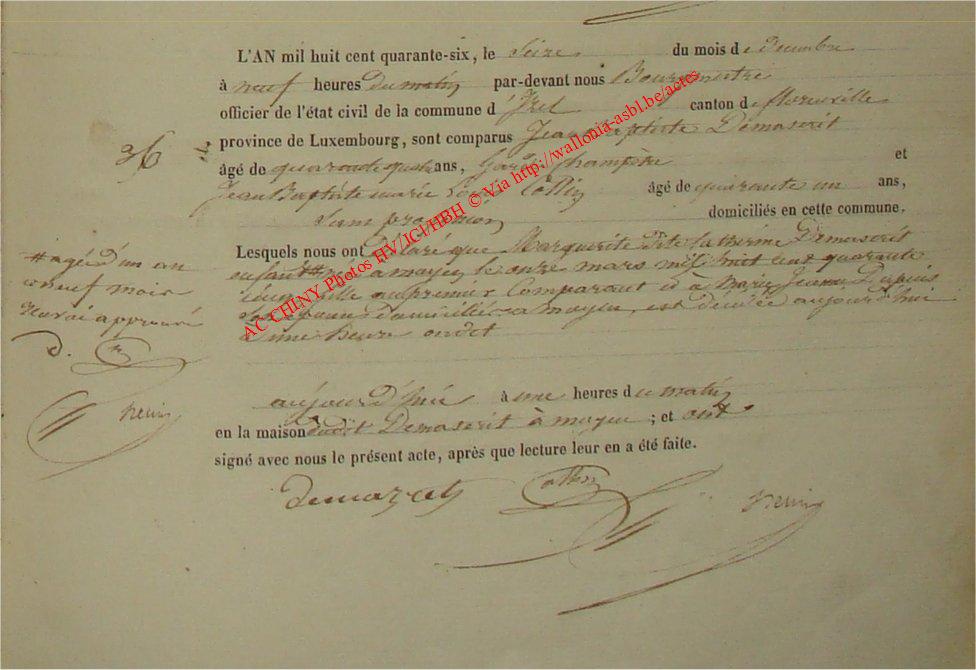 L'AN mil huit cent quarante-six, le Seize du mois de decembre
à neuf heures du matin par-devant nous Bourgmestre
officier de l'état civil de la commune d'Izel canton de florenville
36
province de Luxembourg, sont comparus Jean Baptiste Demaserit
âgé de quarante quatre ans, Garde Champêtre et
Jean Baptiste marie Louis Collin âgé de quarante un ans,
Sans profession domiciliés en cette commune.
Lesquels nous ont déclaré que Marguerite dite Catherine Demaserit
enfant # née a moyen le onze mars mil huit cent quarante
cinq, fille du premier Comparant et à Marie Jeanne Dupuis
Son épouse Domiciliée a moyen, est décédée aujourd'hui
à une heure
# agée d'un an
neuf mois
approuvé
D. C
henin
aujourd'hui à une heures du matin
en la maison dudit Demaserit à moyen ; et ont
signé avec nous le présent acte, après que lecture leur en a été faite.
Collin
henin
AC CHINY Photos HV/JCl/HBH © Via http://wallonia-asbl.be/actes